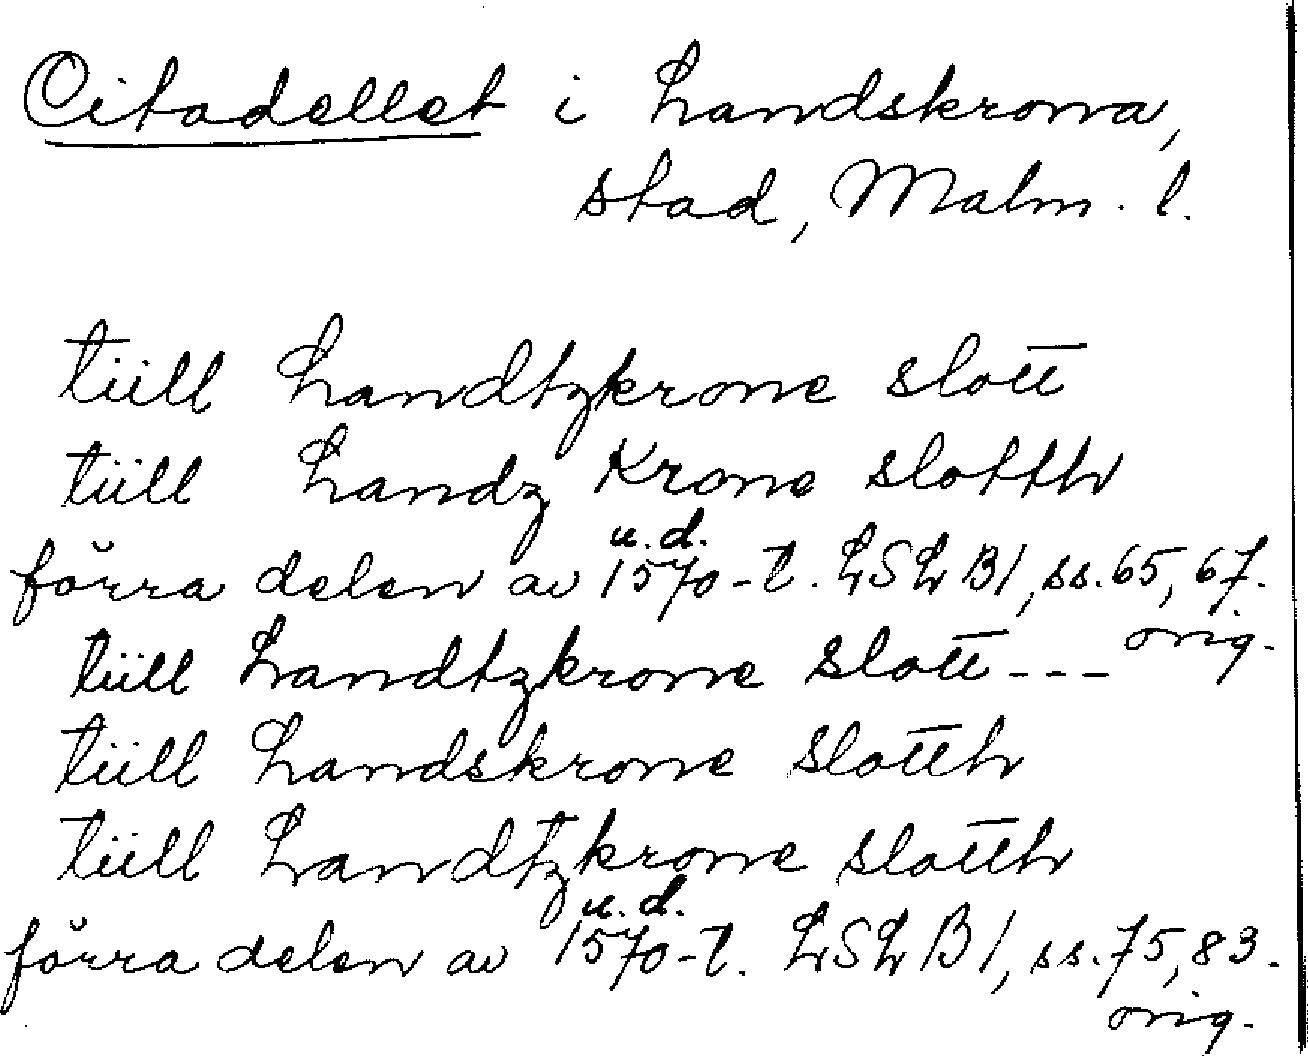 Citadellet i Landskrona,
stad, Malm. l.
tiill Landtzkrone slott
tiill Landz Krone slotth
u.d.
förra delen av 1570-t. LSLB1, ss. 65, 67.
orig.
tiill Landtzkrone Slott ---
tiill Landskrone Slotth
tiill Landtzkrone slotth
u.d.
förra delen av 1570-t. LSLB1, ss. 75, 83.
orig.